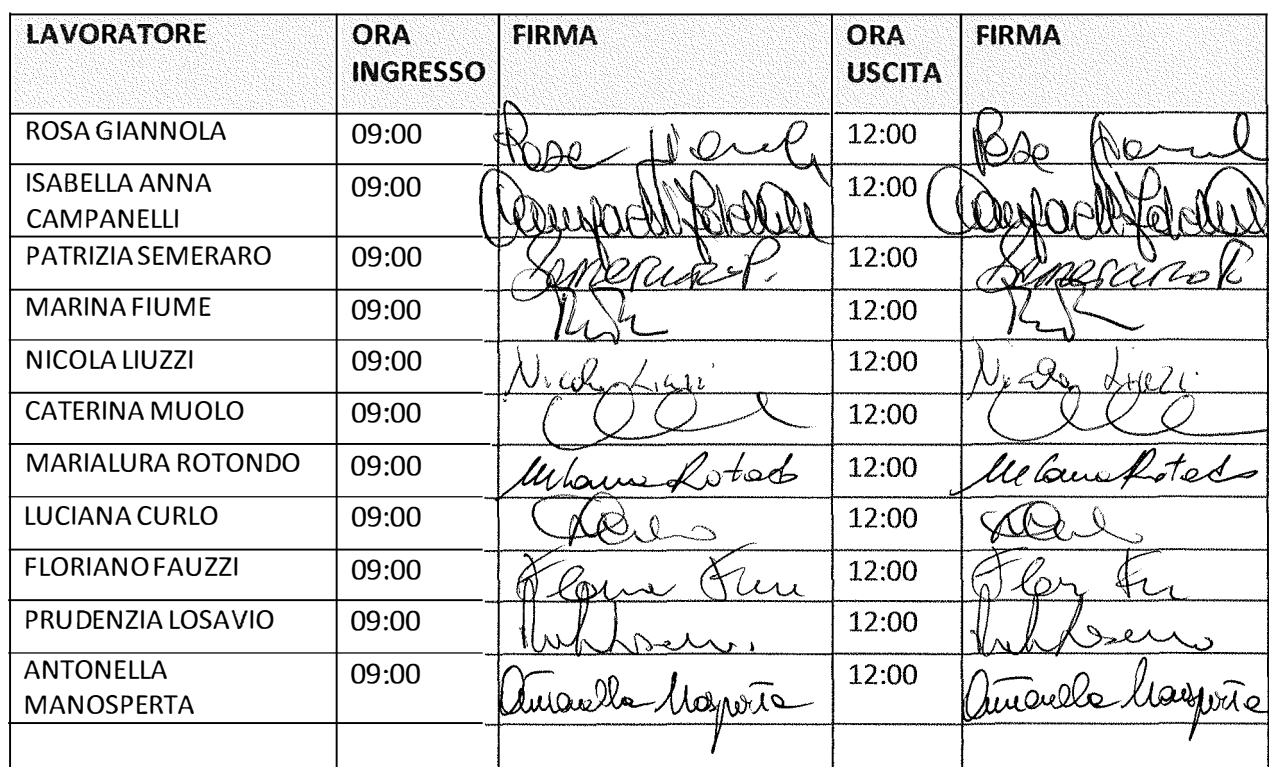 LAVORATORE ORA INGRESSO FIRMA ORA USCITA FIRMA
ROSA GIANNOLA 09:00 Rosa 12:00 Rosa
ISABELLA ANNA CAMPANELLI 09:00 Campanelli Isabella 12:00 Campanelli Isabella
PATRIZIA SEMERARO 09:00 Semeraro P. 12:00 Semeraro P.
MARINA FIUME 09:00 12:00
NICOLA LIUZZI 09:00 Nicola Liuzzi 12:00 Nicola Liuzzi
CATERINA MUOLO 09:00 12:00
MARIALURA ROTONDO 09:00 Rotondo 12:00 Rotondo
LUCIANA CURLO 09:00 12:00
FLORIANO FAUZZI 09:00 12:00
PRUDENZIA LOSAVIO 09:00 12:00
ANTONELLA MANOSPERTA 09:00 Antonella 12:00 Antonella